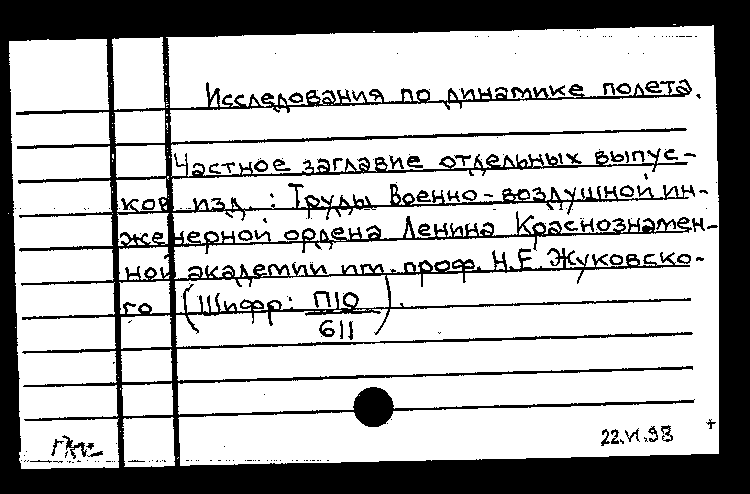 Исследования по динамике полета.
Частное заглавие отдельных выпус-
ков изд.: Труды Военно-воздушной ин-
женерной ордена Ленина Краснознамен-
ной академии им. проф. Н.Е. Жуковско-
го (Шифр: П10/611).
22.VI.98